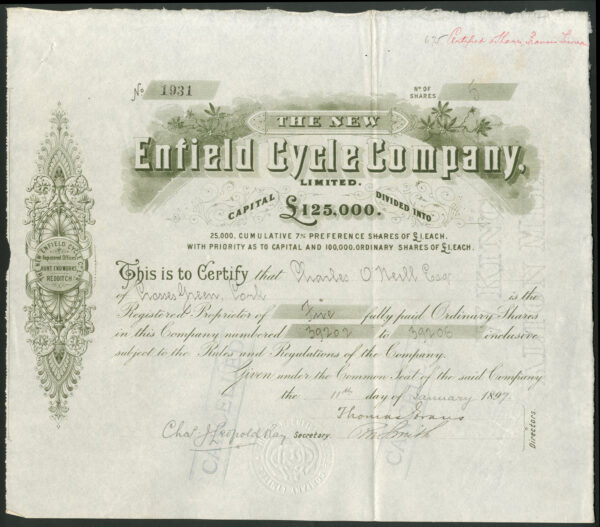 Certified
No 1931
No OF SHARES 5
THE NEW
Enfield Cycle Company,
LIMITED.
CAPITAL £125,000. DIVIDED INTO
25,000, CUMULATIVE 7% PREFERENCE SHARES OF £1. EACH.
WITH PRIORITY AS TO CAPITAL AND 100,000, ORDINARY SHARES OF £1. EACH.
ENFIELD CYCLE
Registered Offices
HUNT END WORKS
REDDITCH
This is to Certify that Charles O'Neill Esq
of Green, Cork is the
Registered Proprietor of Five fully paid Ordinary Shares
in this Company numbered 39202 to 39206 inclusive
subject to the Rules and Regulations of the Company.
Given under the Common Seal of the said Company
the 11th day of January 1897.
Thomas Evans
Chas J Leopold Day Secretary. Smith
Directors